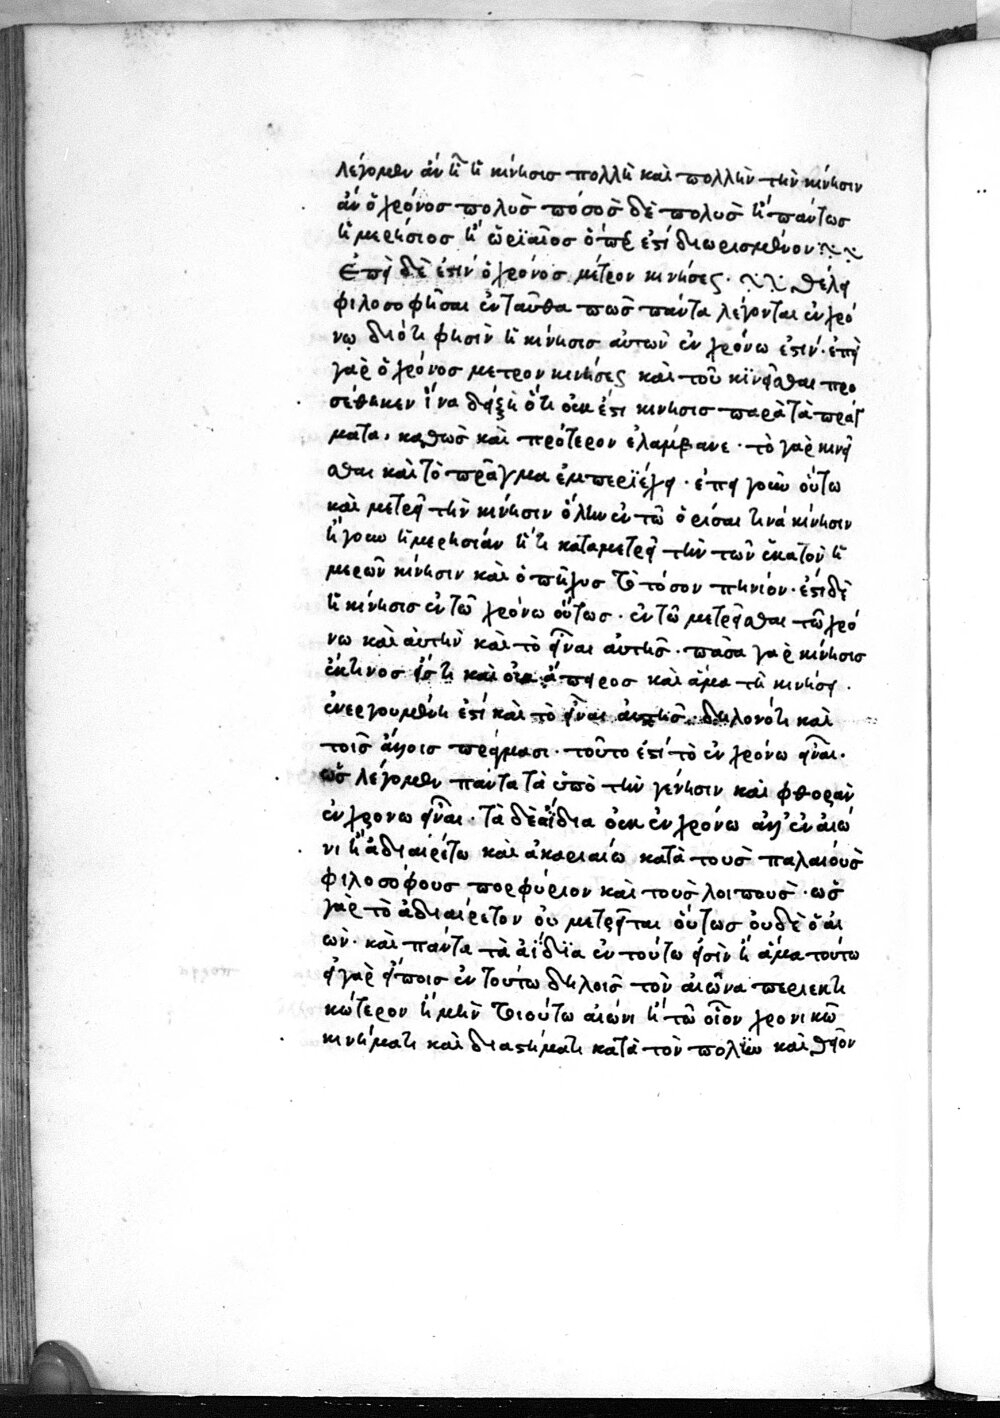 λέγομεν ἀν ἦ ἡ κίνησις πολλὴ καὶ πολλὴν τὴν κίνησιν
ἀν ὁ χρόνος πολὺς πόσος δὲ πολὺς ἢ πάντως
ἡμερήσιος ἢ ὡριαῖος ὅπερ ἐστὶ διωρισμένον
Ἐπεὶ δὲ ἐστὶν ὁ χρόνος μέτρον κινήσεως. θέλει
φιλοσοφῆσαι ἐνταῦθα πῶς πάντα λέγονται ἐν χρό
νω διότι φησὶν ἡ κίνησις αὐτῶν ἐν χρόνω ἐστίν. ἐπεὶ
γὰρ ὁ χρόνος μετρον κινήσεως καὶ τοῦ κϊνεῖσθαι προ
σέθηκεν ἵνα δείξῃ ὅτι οὐκ ἐστι κινησις παρὰ τὰ πράγ
ματα, καθὼς καὶ πρότερον ἐλάμβανε. τὸ γὰρ κινεῖ
σθαι καὶ τὸ πρᾶγμα ἐμπεριέχει. ἐπεὶ γοῦν οὕτω
καὶ μετρεῖ τὴν κίνησιν ὅλην ἐν τῶ ὁρίσαι τινὰ κίνησιν
ἤγουν ἡμερησίαν ἥτις καταμετρεῖ τὴν τῶν ἑκατὸν ἡ
μερῶν κίνησιν καὶ ὁ πῆχυς τὸ τόσον πηνίον. ἐστὶ δὲ
ἡ κίνησις ἐν τῶ χρόνω οὕτως. ἐν τῶ μετρεῖσθαι τῶ χρό
νω καὶ αὐτὴν καὶ τὸ εἶναι αὐτῆς. πᾶσα γὰρ κίνησις
ἐκ τινος εἴς τι καὶ οὐκ ἄπειρος καὶ ἅμα τῇ κινήσει.
ἐνεργουμένη ἐστὶ καὶ τὸ εἶναι αὐτῆς. δηλονότι καὶ
τοῖς ἄλλοις πράγμασι. τοῦτο ἐστὶ τὸ ἐν χρόνω εἶναι.
ὡς λέγομεν πάντα τὰ ὑπὸ τὴν γένησιν καὶ φθορὰν
ἐν χρονω εἶναι. τὰ δὲ ἀΐδια οὐκ ἐν χρόνω ἀλλ' ἐν αἰῶ
νι ἢ ἀδιαιρέτω καὶ ἀκαριαίω κατὰ τοὺς παλαιοὺς
φιλοσόφους πορφύριον καὶ τοὺς λοιποὺς. ὡς
γὰρ τὸ ἀδιαίρετον οὐ μετρεῖται οὕτως οὐδὲ ὁ αἰ
ών. καὶ πάντα τὰ ἀΐδϊα ἐν τούτω εἰσὶν ἢ ἅμα τούτω
εἰ γὰρ εἴποις ἐν τούτω δηλοῖς τὸν αἰῶνα περιεκτι
κώτερον ἢ μὴν τοιούτω αἰῶνι ἢ τῶ οἷον χρονικῶ
κινήματι καὶ διαστήματι κατὰ τὸν πολὺν καὶ θεῖον